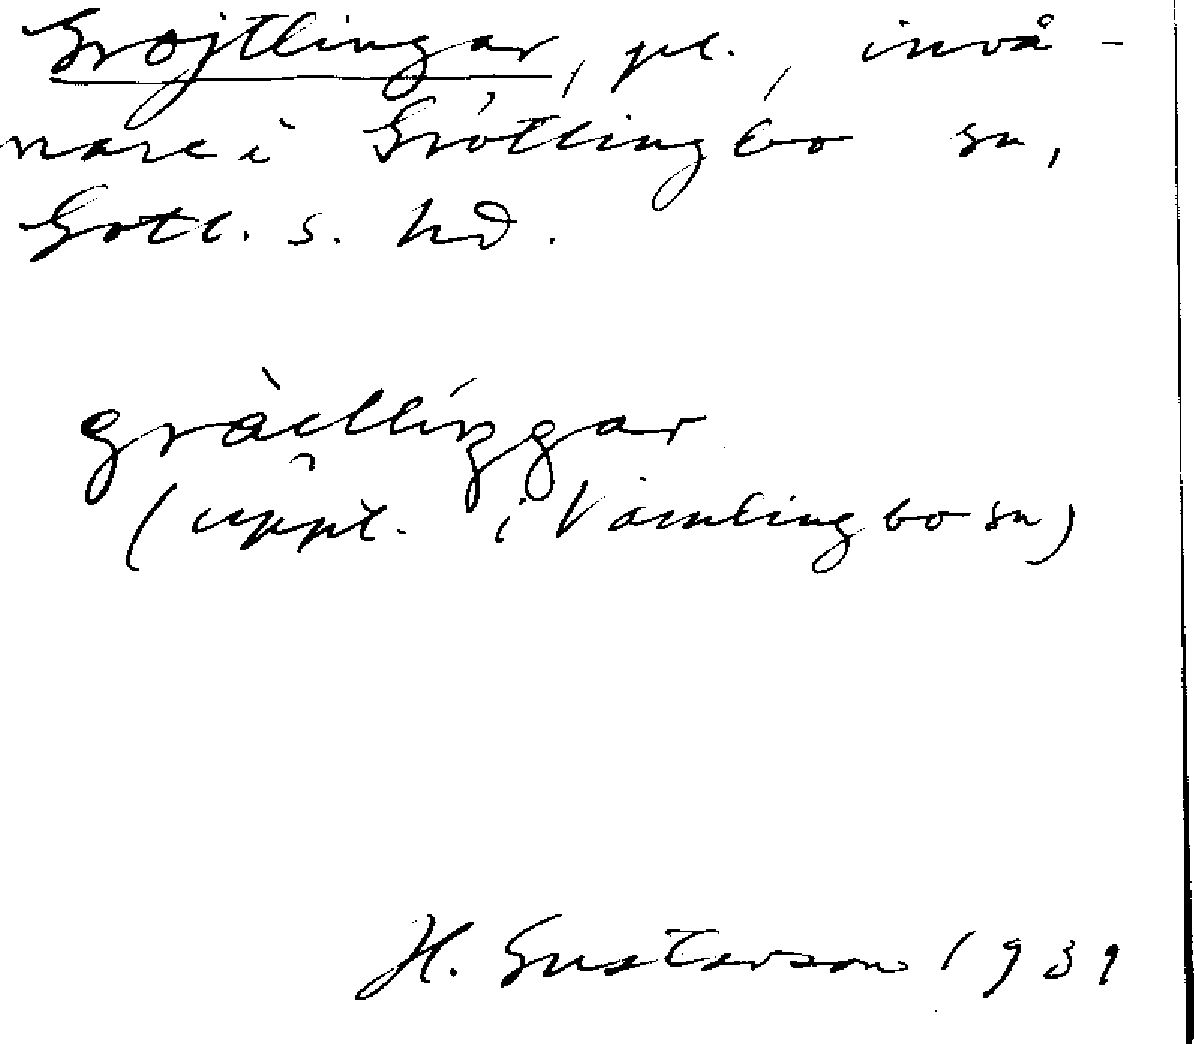 Gröjtlingar, pl., invå-
nare i Grötlingbo sn,
Gotl. s. hd.
(uppt. i Vamlingbo sn)
H. Gustavson 1939